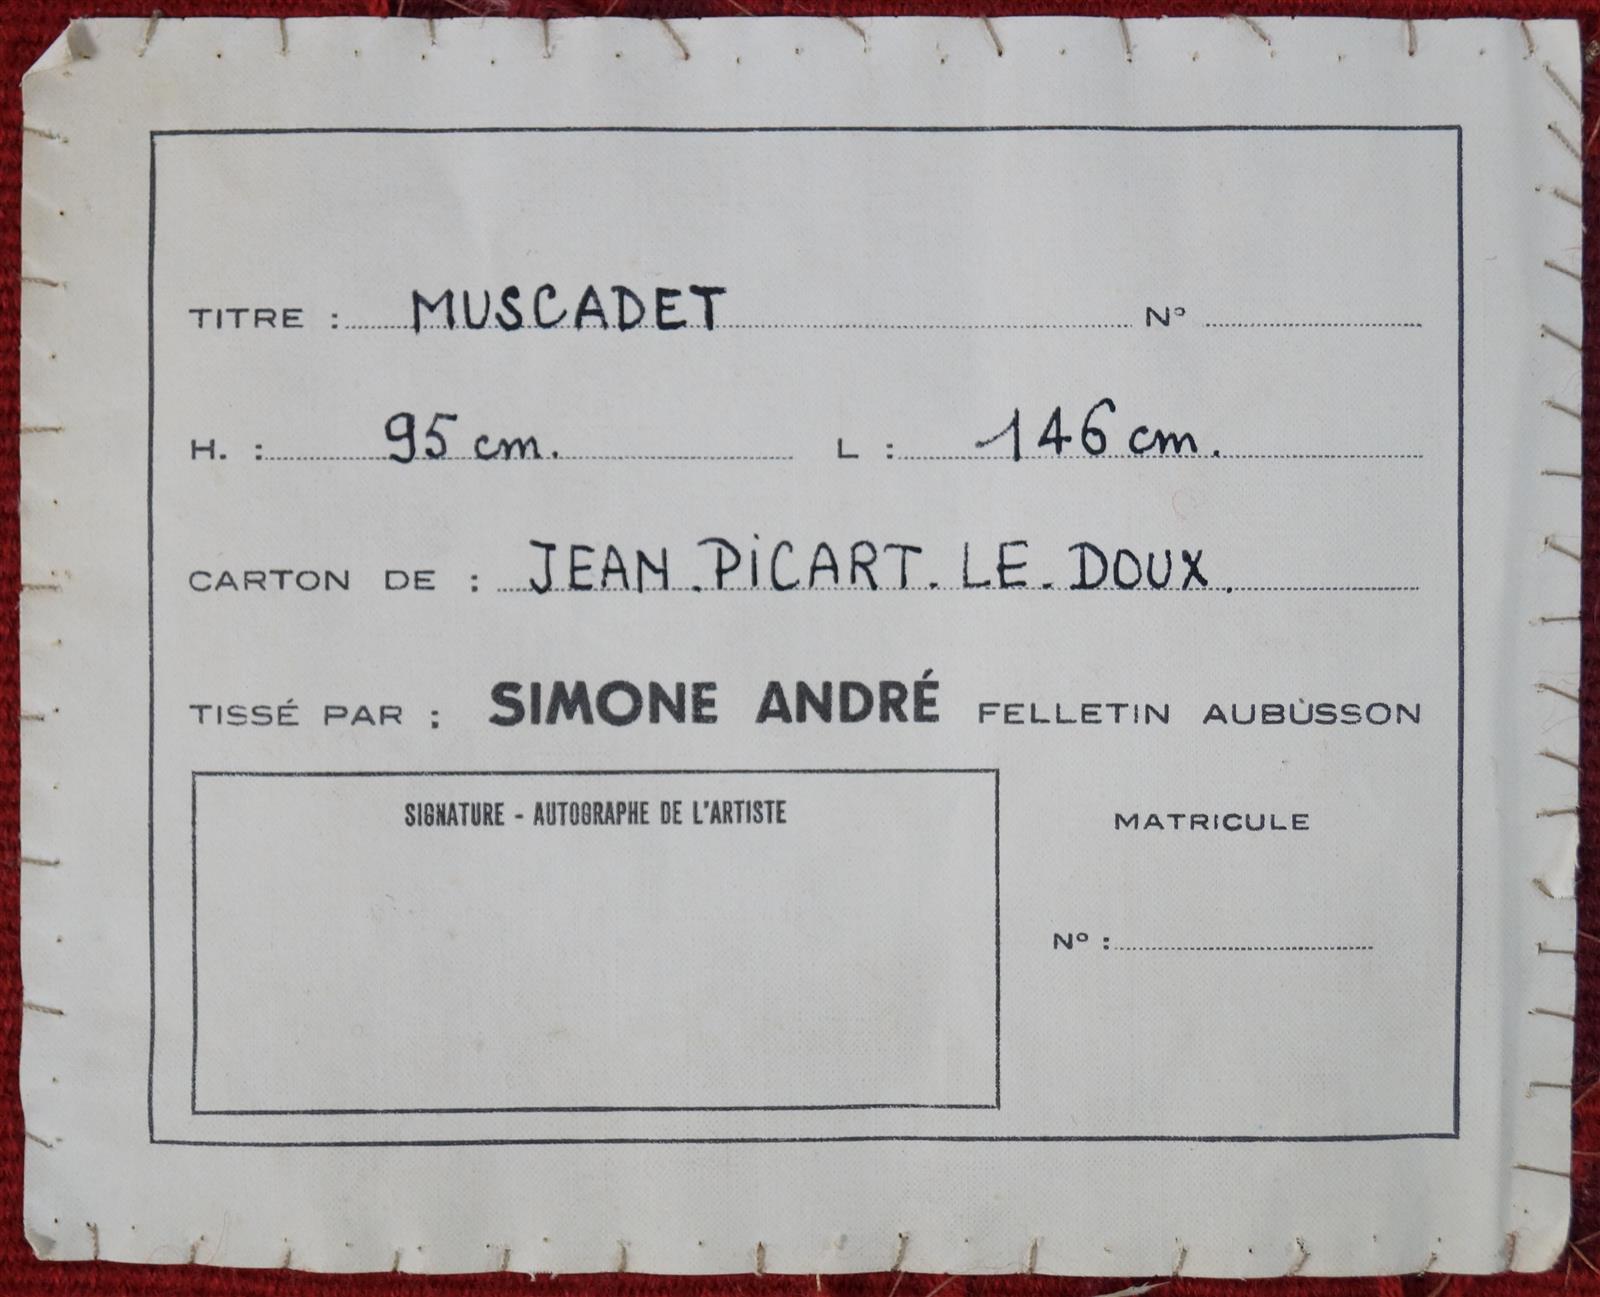 TITRE : MUSCADET N°
H. : 95 cm. L : 146 cm.
CARTON DE : JEAN.PiCART.LE.DOUX.
TISSÉ PAR : SIMONE ANDRÉ FELLETIN AUBÙSSON
SIGNATURE - AUTOGRAPHE DE L'ARTISTE
MATRICULE
N° :